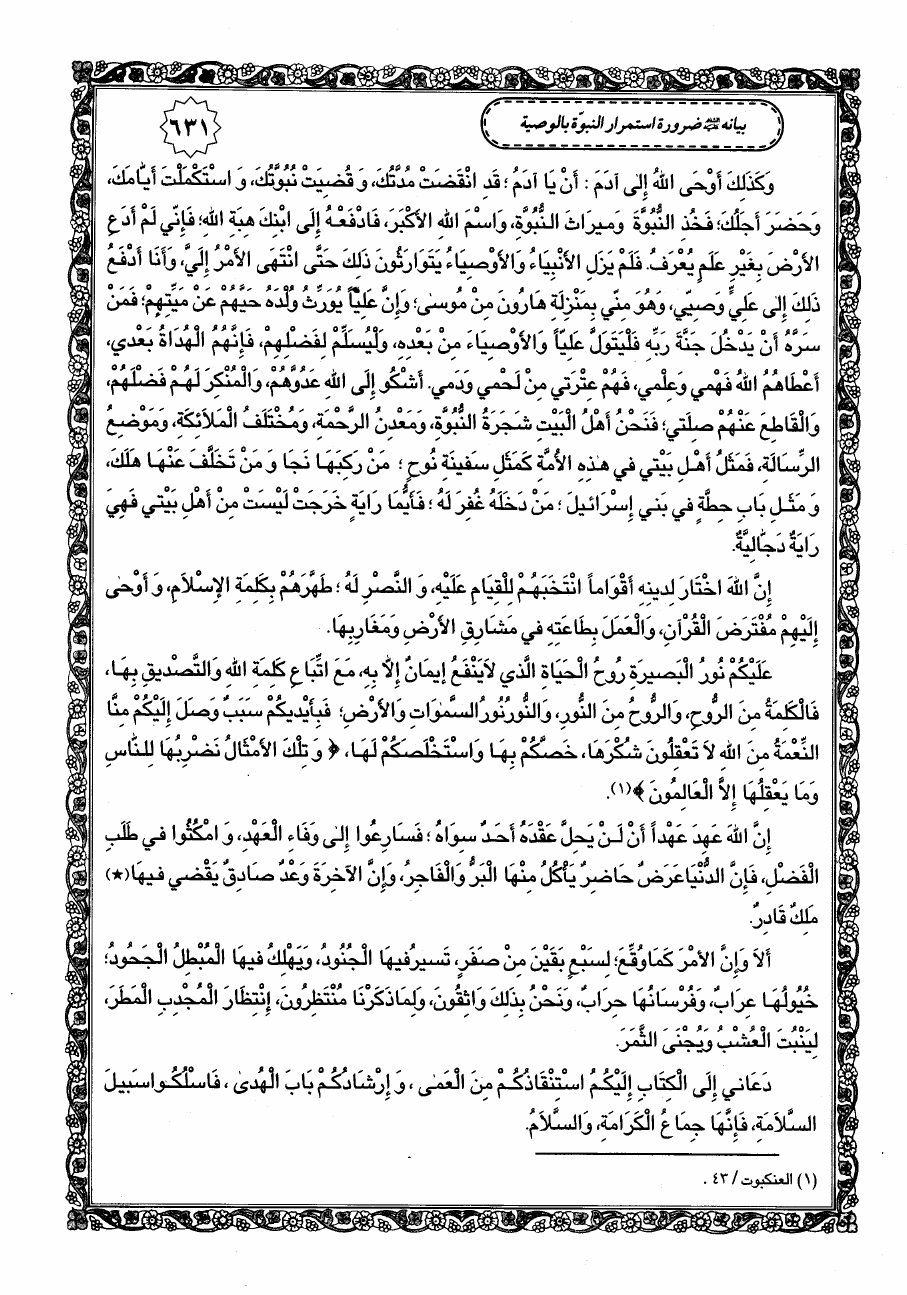 بيانه ﷺ ضرورة استمرار النبوّة بالوصية
٦٣١
وَكَذَلِكَ أَوْحَى اللهُ إِلى آدَمَ : أَنْ يَا آدَمُ ؛ قَد انْقَضَتْ مُدَّتُكَ، وَ قُضِيَتْ نُبُوَّتُكَ، وَ اسْتَكْمَلْتَ أَيّامَكَ،
وَحَضَرَ أَجَلُكَ؛ فَخُذِ النُّبُوَّةَ وَميرَاثَ النُّبُوَّةِ، وَاسْمَ اللهِ الأَكْبَرَ، فَادْفَعْهُ إِلَى ابْنِكَ هِبَةِ اللهِ؛ فَإِنّي لَمْ أَدَعِ
الأَرْضَ بِغَيْرِ عَلَمٍ يُعْرَفُ. فَلَمْ يَزَلِ الأَنْبِيَاءُ وَالأَوْصِيَاءُ يَتَوَارَثُونَ ذَلِكَ حَتَّى انْتَهَى الأَمْرُ إِلَيَّ، وَأَنَا أَدْفَعُ
ذَلِكَ إِلى عَلِيٍّ وَصِيّي، وَهُوَ مِنّي بِمَنْزِلَةِ هَارُونَ مِنْ مُوسى؛ وَإِنَّ عَلِيّاً يُوَرِّثُ وُلْدَهُ حَيَّهُمْ عَنْ مَيِّتِهِمْ؛ فَمَنْ
سَرَّهُ أَنْ يَدْخُلَ جَنَّةَ رَبِّهِ فَلْيَتَوَلَّ عَلِيّاً وَالأَوْصِيَاءَ مِنْ بَعْدِهِ، وَلْيُسَلِّمْ لِفَضْلِهِمْ، فَإِنَّهُمُ الْهُدَاةُ بَعْدي،
أَعْطَاهُمُ اللهُ فَهْمي وَعِلْمي، فَهُمْ عِتْرَتي مِنْ لَحْمي وَدَمي. أَشْكُو إِلَى اللهِ عَدُوَّهُمْ، وَالْمُنْكِرَ لَهُمْ فَضْلَهُمْ،
وَالْقَاطِعَ عَنْهُمْ صِلَتي؛ فَنَحْنُ أَهْلُ الْبَيْتِ شَجَرَةُ النُّبُوَّةِ، وَمَعْدِنُ الرَّحْمَةِ، وَمُخْتَلَفُ الْمَلاَئِكَةِ، وَمَوْضِعُ
الرِّسَالَةِ، فَمَثَلُ أَهْلِ بَيْتي في هذِهِ الأُمَّةِ كَمَثَلِ سَفينَةِ نُوحٍ ؛ مَنْ رَكِبَهَا نَجَا وَ مَنْ تَخَلَّفَ عَنْهَا هَلَكَ،
وَ مَثَلِ بَابِ حِطَّةٍ في بَني إِسْرَائيلَ ؛ مَنْ دَخَلَهُ غُفِرَ لَهُ ؛ فَأَيُّمَا رَايَةٍ خَرَجَتْ لَيْسَتْ مِنْ أَهْلِ بَيْتي فَهِيَ
رَايَةٌ دَجّالِيَّةٌ.
إِنَّ اللهَ اخْتَارَ لِدينِهِ أَقْوَاماً انْتَخَبَهُمْ لِلْقِيَامِ عَلَيْهِ، وَ النَّصْرِ لَهُ ؛ طَهَّرَهُمْ بِكَلِمَةِ الإِسْلاَمِ، وَ أَوْحى
إِلَيْهِمْ مُفْتَرَضَ الْقُرْآنِ، وَالْعَمَلَ بِطَاعَتِهِ في مَشَارِقِ الأَرْضِ وَمَغَارِبِهَا.
عَلَيْكُمْ نُورُ الْبَصيرَةِ رُوحُ الْحَيَاةِ الَّذي لاَيَنْفَعُ إيمَانٌ إِلاّ بِهِ، مَعَ اتِّبَاعِ كَلِمَةِ اللهِ وَالتَّصْديقِ بِهَا،
فَالْكَلِمَةُ مِنَ الرُّوحِ، وَالرُّوحُ مِنَ النُّورِ، وَالنُّورُ نُورُ السَّموَاتِ وَالأَرْضِ؛ فَبِأَيْديكُمْ سَبَبٌ وَصَلَ إِلَيْكُمْ مِنَّا
النِّعْمَةُ مِنَ اللهِ لاَ تَعْقِلُونَ شُكْرَهَا، خَصَّكُمْ بِهَا وَاسْتَخْلَصَكُمْ لَهَا، ﴿ وَ تِلْكَ الأَمْثَالُ نَضْرِبُهَا لِلنَّاسِ
وَمَا يَعْقِلُهَا إِلاَّ الْعَالِمُونَ ﴾(١).
إِنَّ اللهَ عَهِدَ عَهْداً أَنْ لَنْ يَحِلَّ عَقْدَهُ أَحَدٌ سِوَاهُ ؛ فَسَارِعُوا إِلى وَفَاءِ الْعَهْدِ، وَ امْكُثُوا في طَلَبِ
الْفَضْلِ، فَإِنَّ الدُّنْيَا عَرَضٌ حَاضِرٌ يَأْكُلُ مِنْهَا الْبَرُّ وَالْفَاجِرُ، وَإِنَّ الآخِرَةَ وَعْدٌ صَادِقٌ يَقْضي فيهَا(★)
مَلِكٌ قَادِرٌ.
أَلاَ وَإِنَّ الأَمْرَ كَمَا وُقِّعَ؛ لِسَبْعٍ بَقَيْنَ مِنْ صَفَرٍ، تَسيرُ فيهَا الْجُنُودُ، وَيَهْلِكُ فيهَا الْمُبْطِلُ الْجَحُودُ؛
خُيُولُهَا عِرَابٌ، وَفُرْسَانُهَا حِرَابٌ، وَنَحْنُ بِذَلِكَ وَاثِقُونَ، وَلِمَا ذَكَرْنَا مُنْتَظِرُونَ، إِنْتِظَارَ الْمُجْدِبِ الْمَطَرَ،
لِيَنْبُتَ الْعُشْبُ وَيُجْنَى الثَّمَرَ.
دَعَاني إِلَى الْكِتَابِ إِلَيْكُمُ اسْتِنْقَاذُكُمْ مِنَ الْعَمى ، وَ إِرْشَادُكُمْ بَابَ الْهُدى ، فَاسْلُكُوا سَبيلَ
السَّلاَمَةِ، فَإِنَّهَا جِمَاعُ الْكَرَامَةِ، وَالسَّلاَمُ.
(١) العنكبوت / ٤٣ .